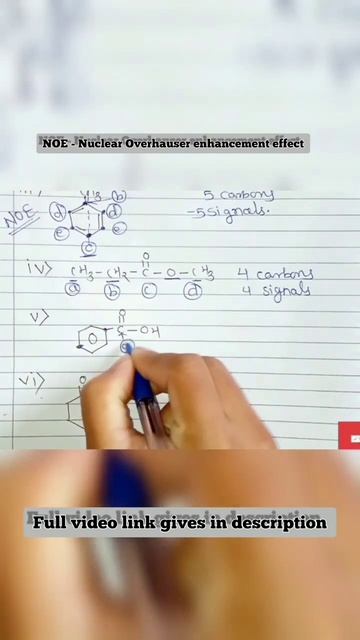 NOE - Nuclear Overhauser enhancement effect
CH3
b
5 carbons
NOE
d
d
- 5 signals.
e
e
c
O
iv) CH3-CH2-C-O-CH3
4 carbons
a b c d
4 signals
v)
O
C-OH
a
vi)
O
Full video link gives in description